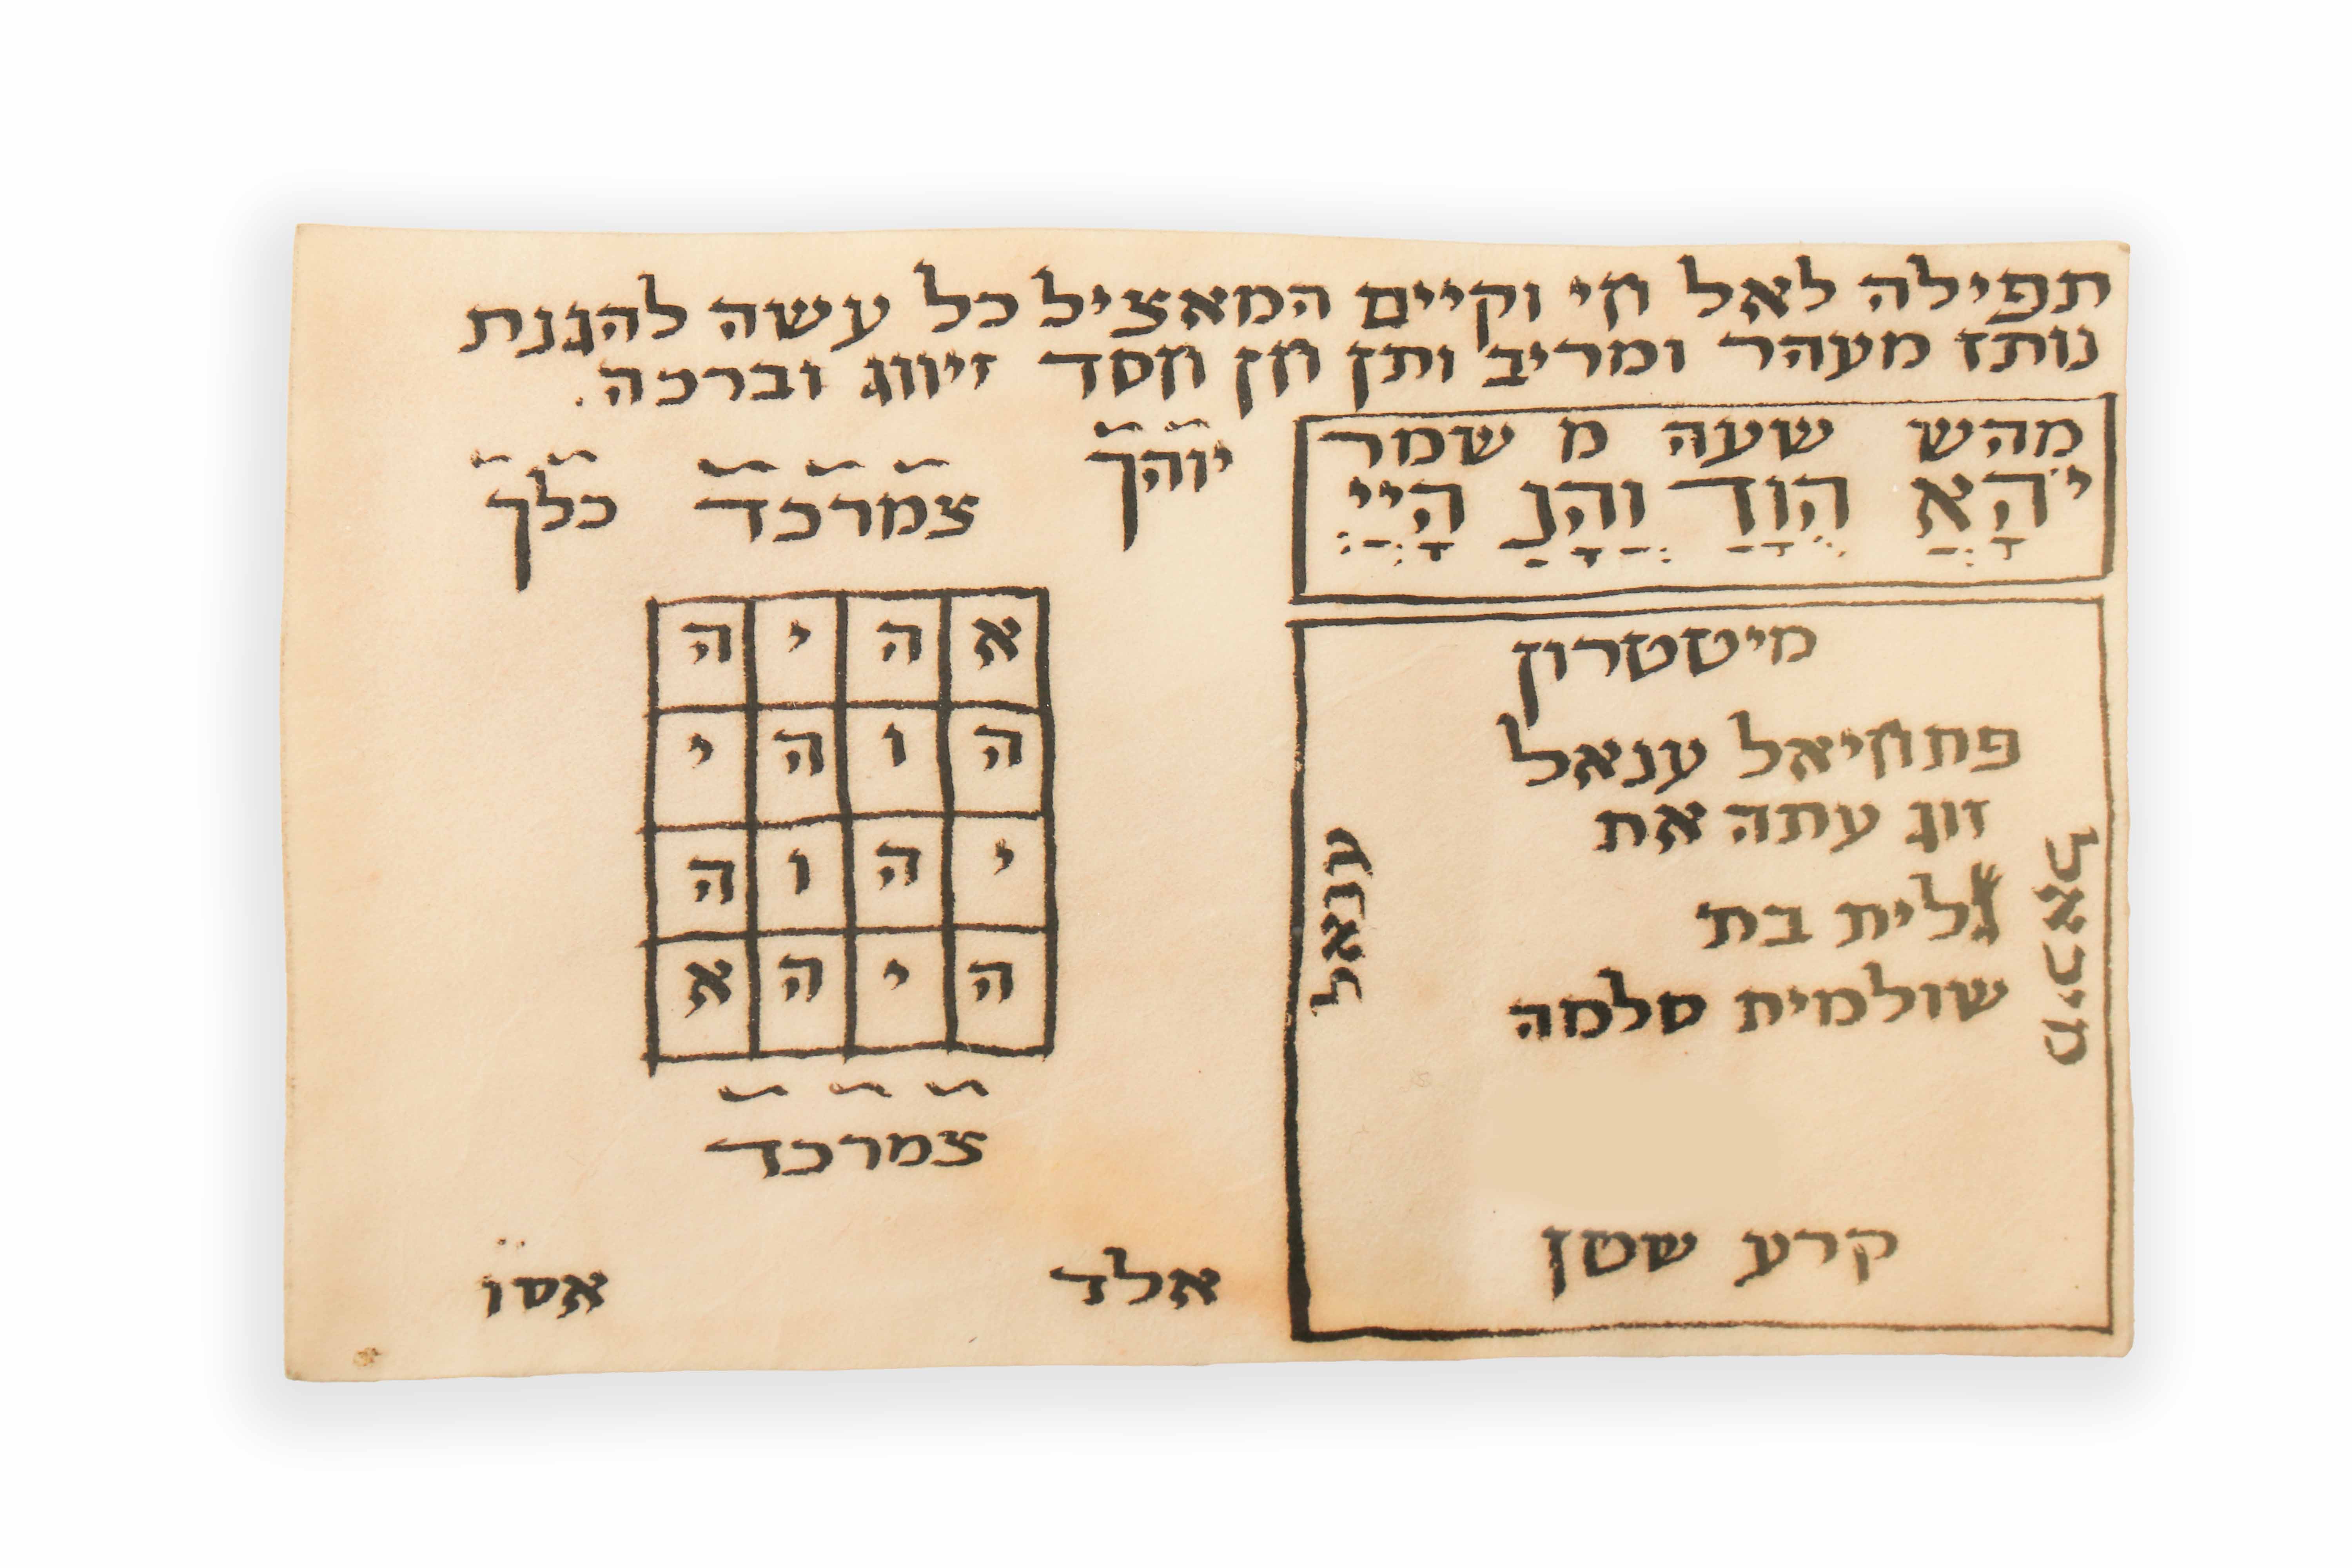 תפילה לאל חי וקיים המאציל כל עשה להגנת
נותז מעהר ומריב ותן חן חסד זיווג וברכה.
מהש שעה מ שמר
יֹהָאֲ הֻוָדַ וַהָנַ הָיֲיְ
מיטטרון
פתחיאל ענאל
זוג עתה את
גלית בת
שולמית סלמה
קרע שטן
ענאל
יוהך
צמרכד
כלך
א ה י ה
ה ו ה י
י ה ו ה
ה י ה א
צמרכד
אלד
אסו